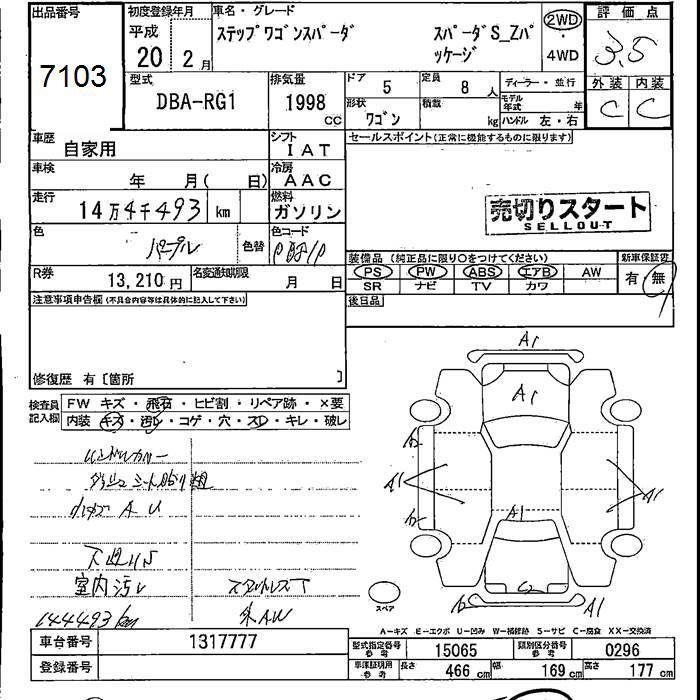 出品番号
7103
初度登録年月
平成
20 2月
車名・グレード
ステップワゴンスパーダ スパーダS_Zパッケージ
2WD
・
4WD
評価点
3,5
外装 内装
C C
型式
DBA-RG1
排気量
1998
CC
ドア
5
定員
8人
形状
ワゴン
積載
kg
ディーラー・並行
モデル年式 年
ハンドル 左・右
車歴
自家用
シフト
IAT
車検
年 月( 日)
冷房
AAC
走行
14万4千493 km
燃料
ガソリン
色
パープル
色替
色コード
R券
13,210円
名変通知期限
月 日
セールスポイント(正常に機能するものに限ります)
売切りスタート
SELLOUT
装備品(純正品に限り○をつけてください)
PS PW ABS エアB AW
SR ナビ TV カワ
新車保証書
有 無
後日品
注意事項申告欄(不具合内容等は具体的に記入して下さい)
修復歴 有〔箇所 〕
検査員記入欄
FW キズ・飛石・ヒビ割・リペア跡・×要
内装 キズ・汚レ・コゲ・穴・スレ・キレ・破レ
室内汚レ
144493km
外AW
A1
A1
A1
A1
A1
A1
スペア
A-キズ E-エクボ U-凹み W-補修跡 S-サビ C-腐食 XX-交換済
車台番号
1317777
登録番号
型式指定番号 参考
15065
類別区分番号 参考
0296
車庫証明用 参考
長さ 466cm 幅 169cm 高さ 177cm